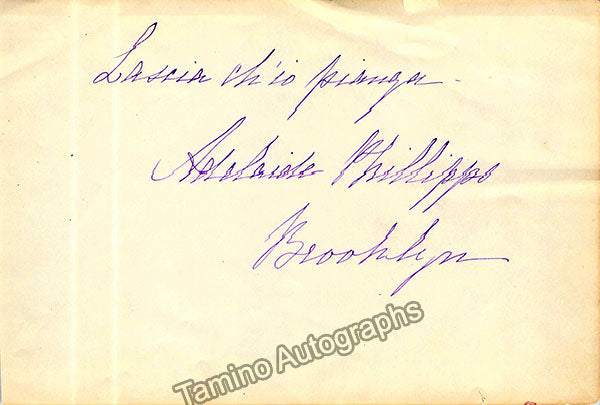 Lascia ch'io pianga -
Adelaide Phillipps
Brooklyn
Tamino Autographs